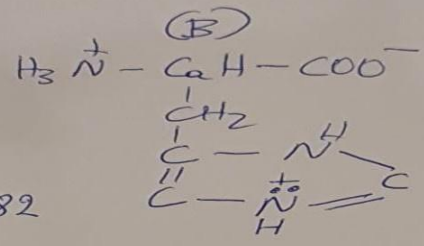 (B)
H3 N+ – Ca H – COO−
CH2
C – NH
C
82 C – N+ =
H